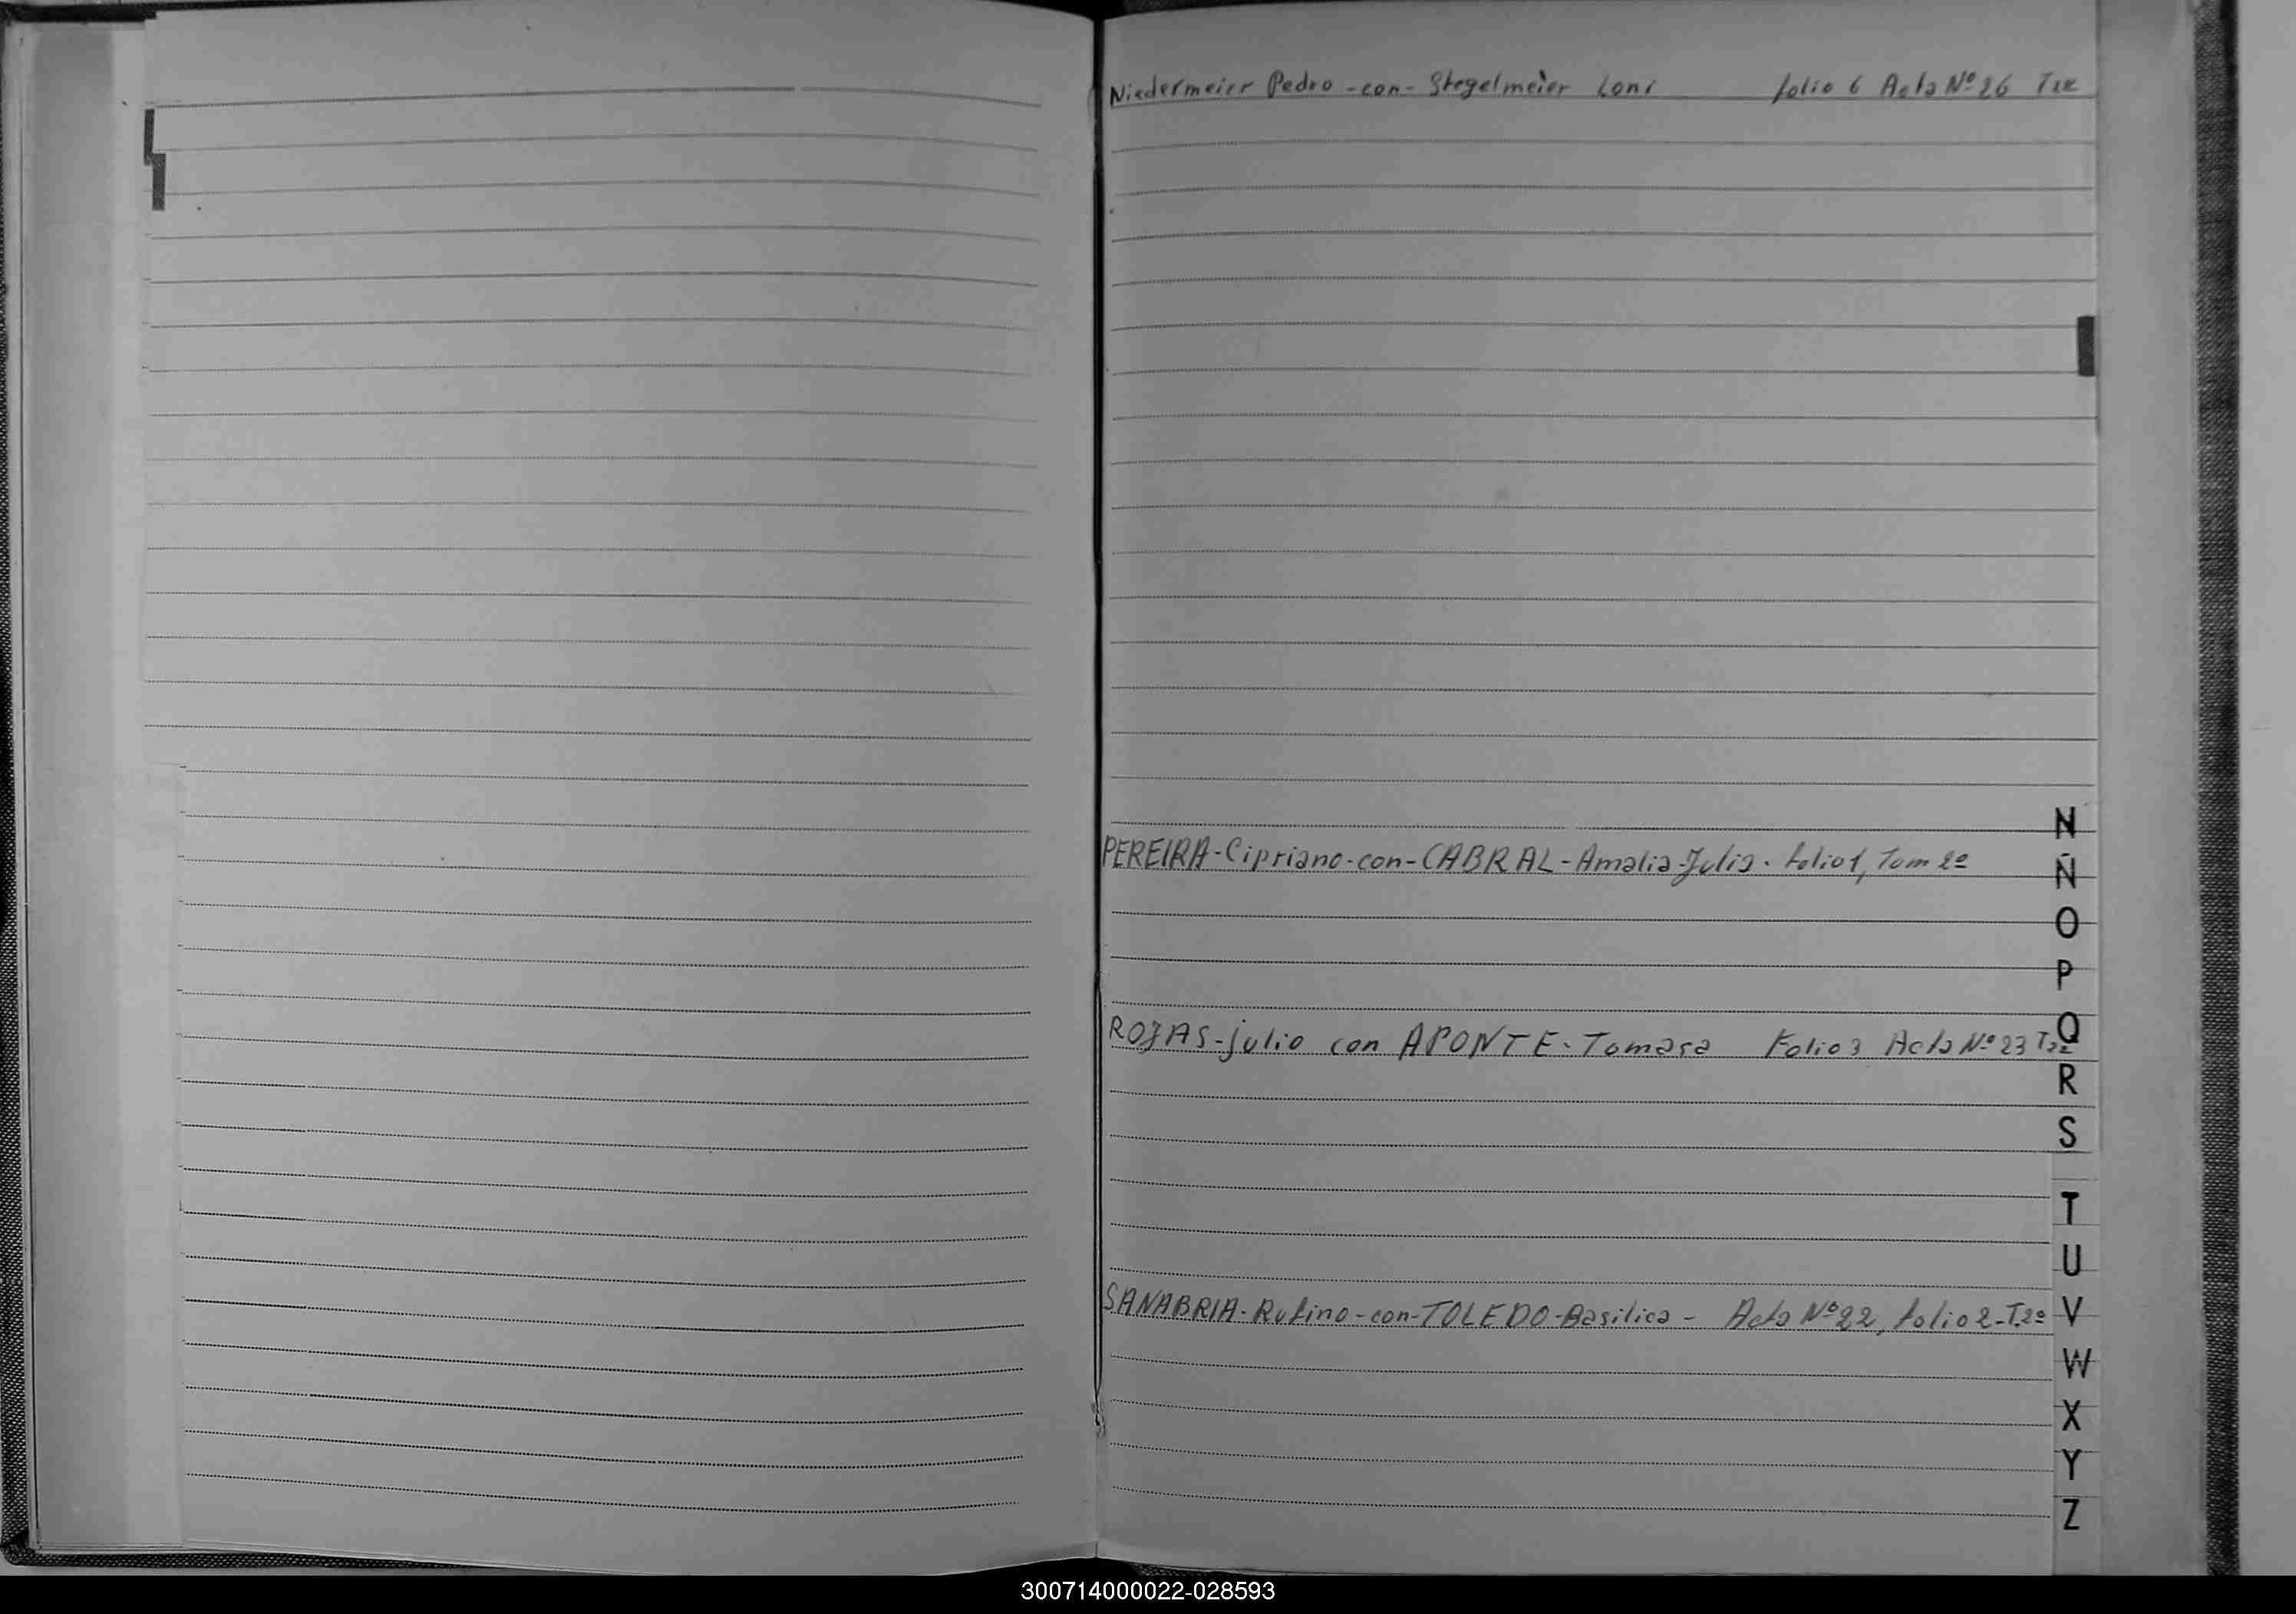 Niedermeier Pedro -con- Stegelmeier Loni folio 6 Acta Nº 26 T2º
N
PEREIRA-Cipriano-con-CABRAL-Amalia-Julia. folio 1, Tom 2º
Ñ
O
P
Q
ROJAS-julio con APONTE-Tomasa Folio 3 Acta Nº 23
R
S
T
U
SANABRIA-Rufino-con-TOLEDO-Basilica- Acta Nº 22, folio 2-T.2º
V
W
X
Y
Z
300714000022-028593